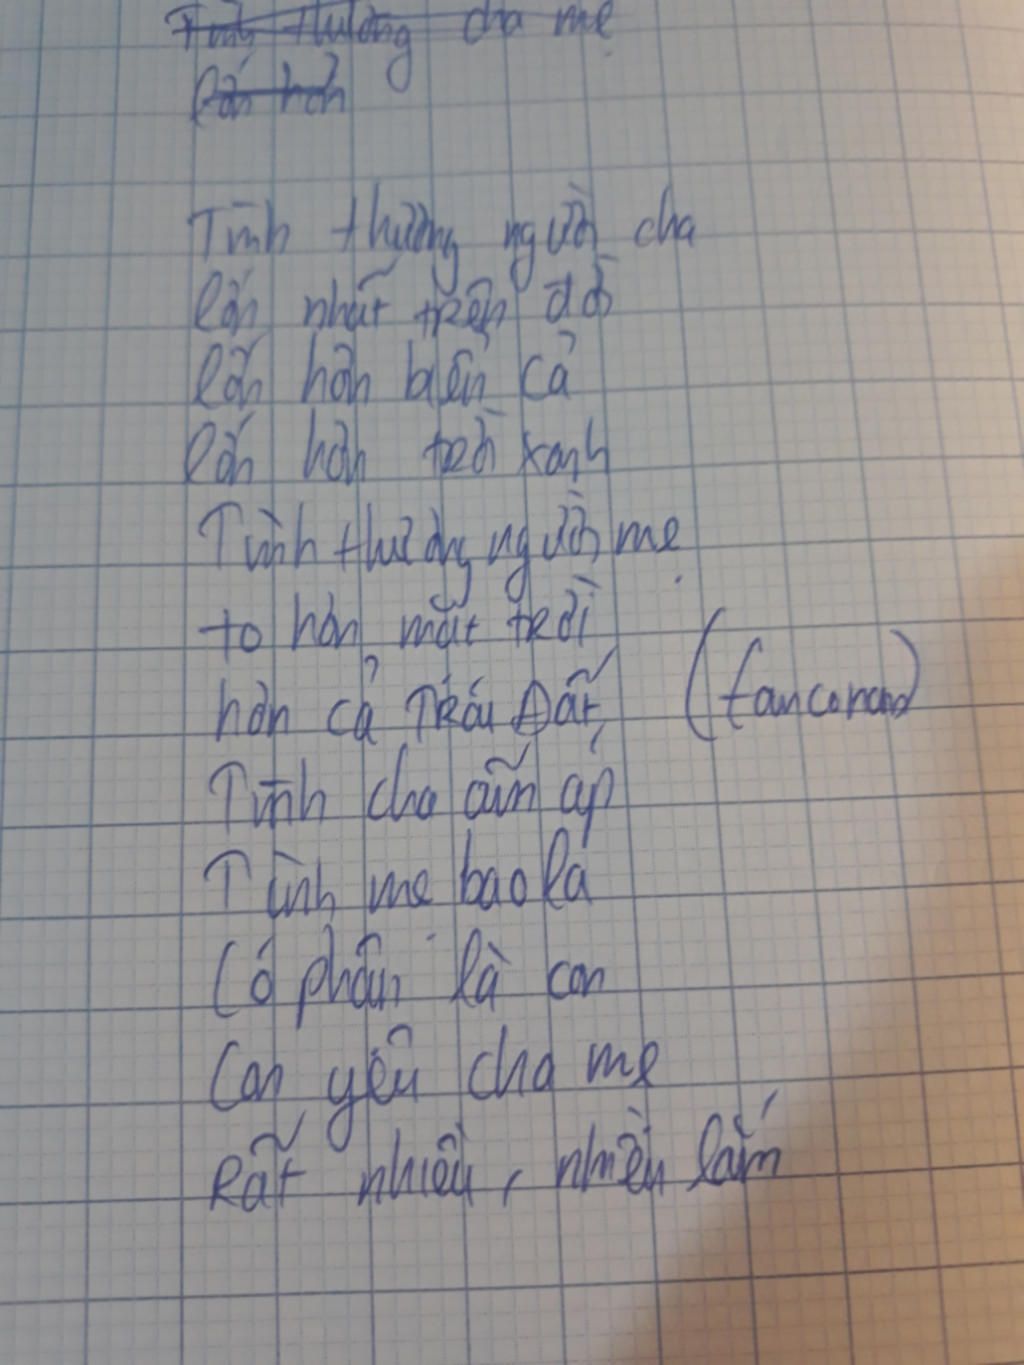 Tình thương cha mẹ
lớn hơn
Tình thương người cha
lớn nhất trên đời
lớn hơn biển cả
lớn hơn trời xanh
Tình thương người mẹ
to hơn mặt trời
hơn cả Trái Đất,
Tình cha ấm áp
Tình mẹ bao la
Có phận là con
Con yêu cha mẹ
Rất nhiều, nhiều lắm